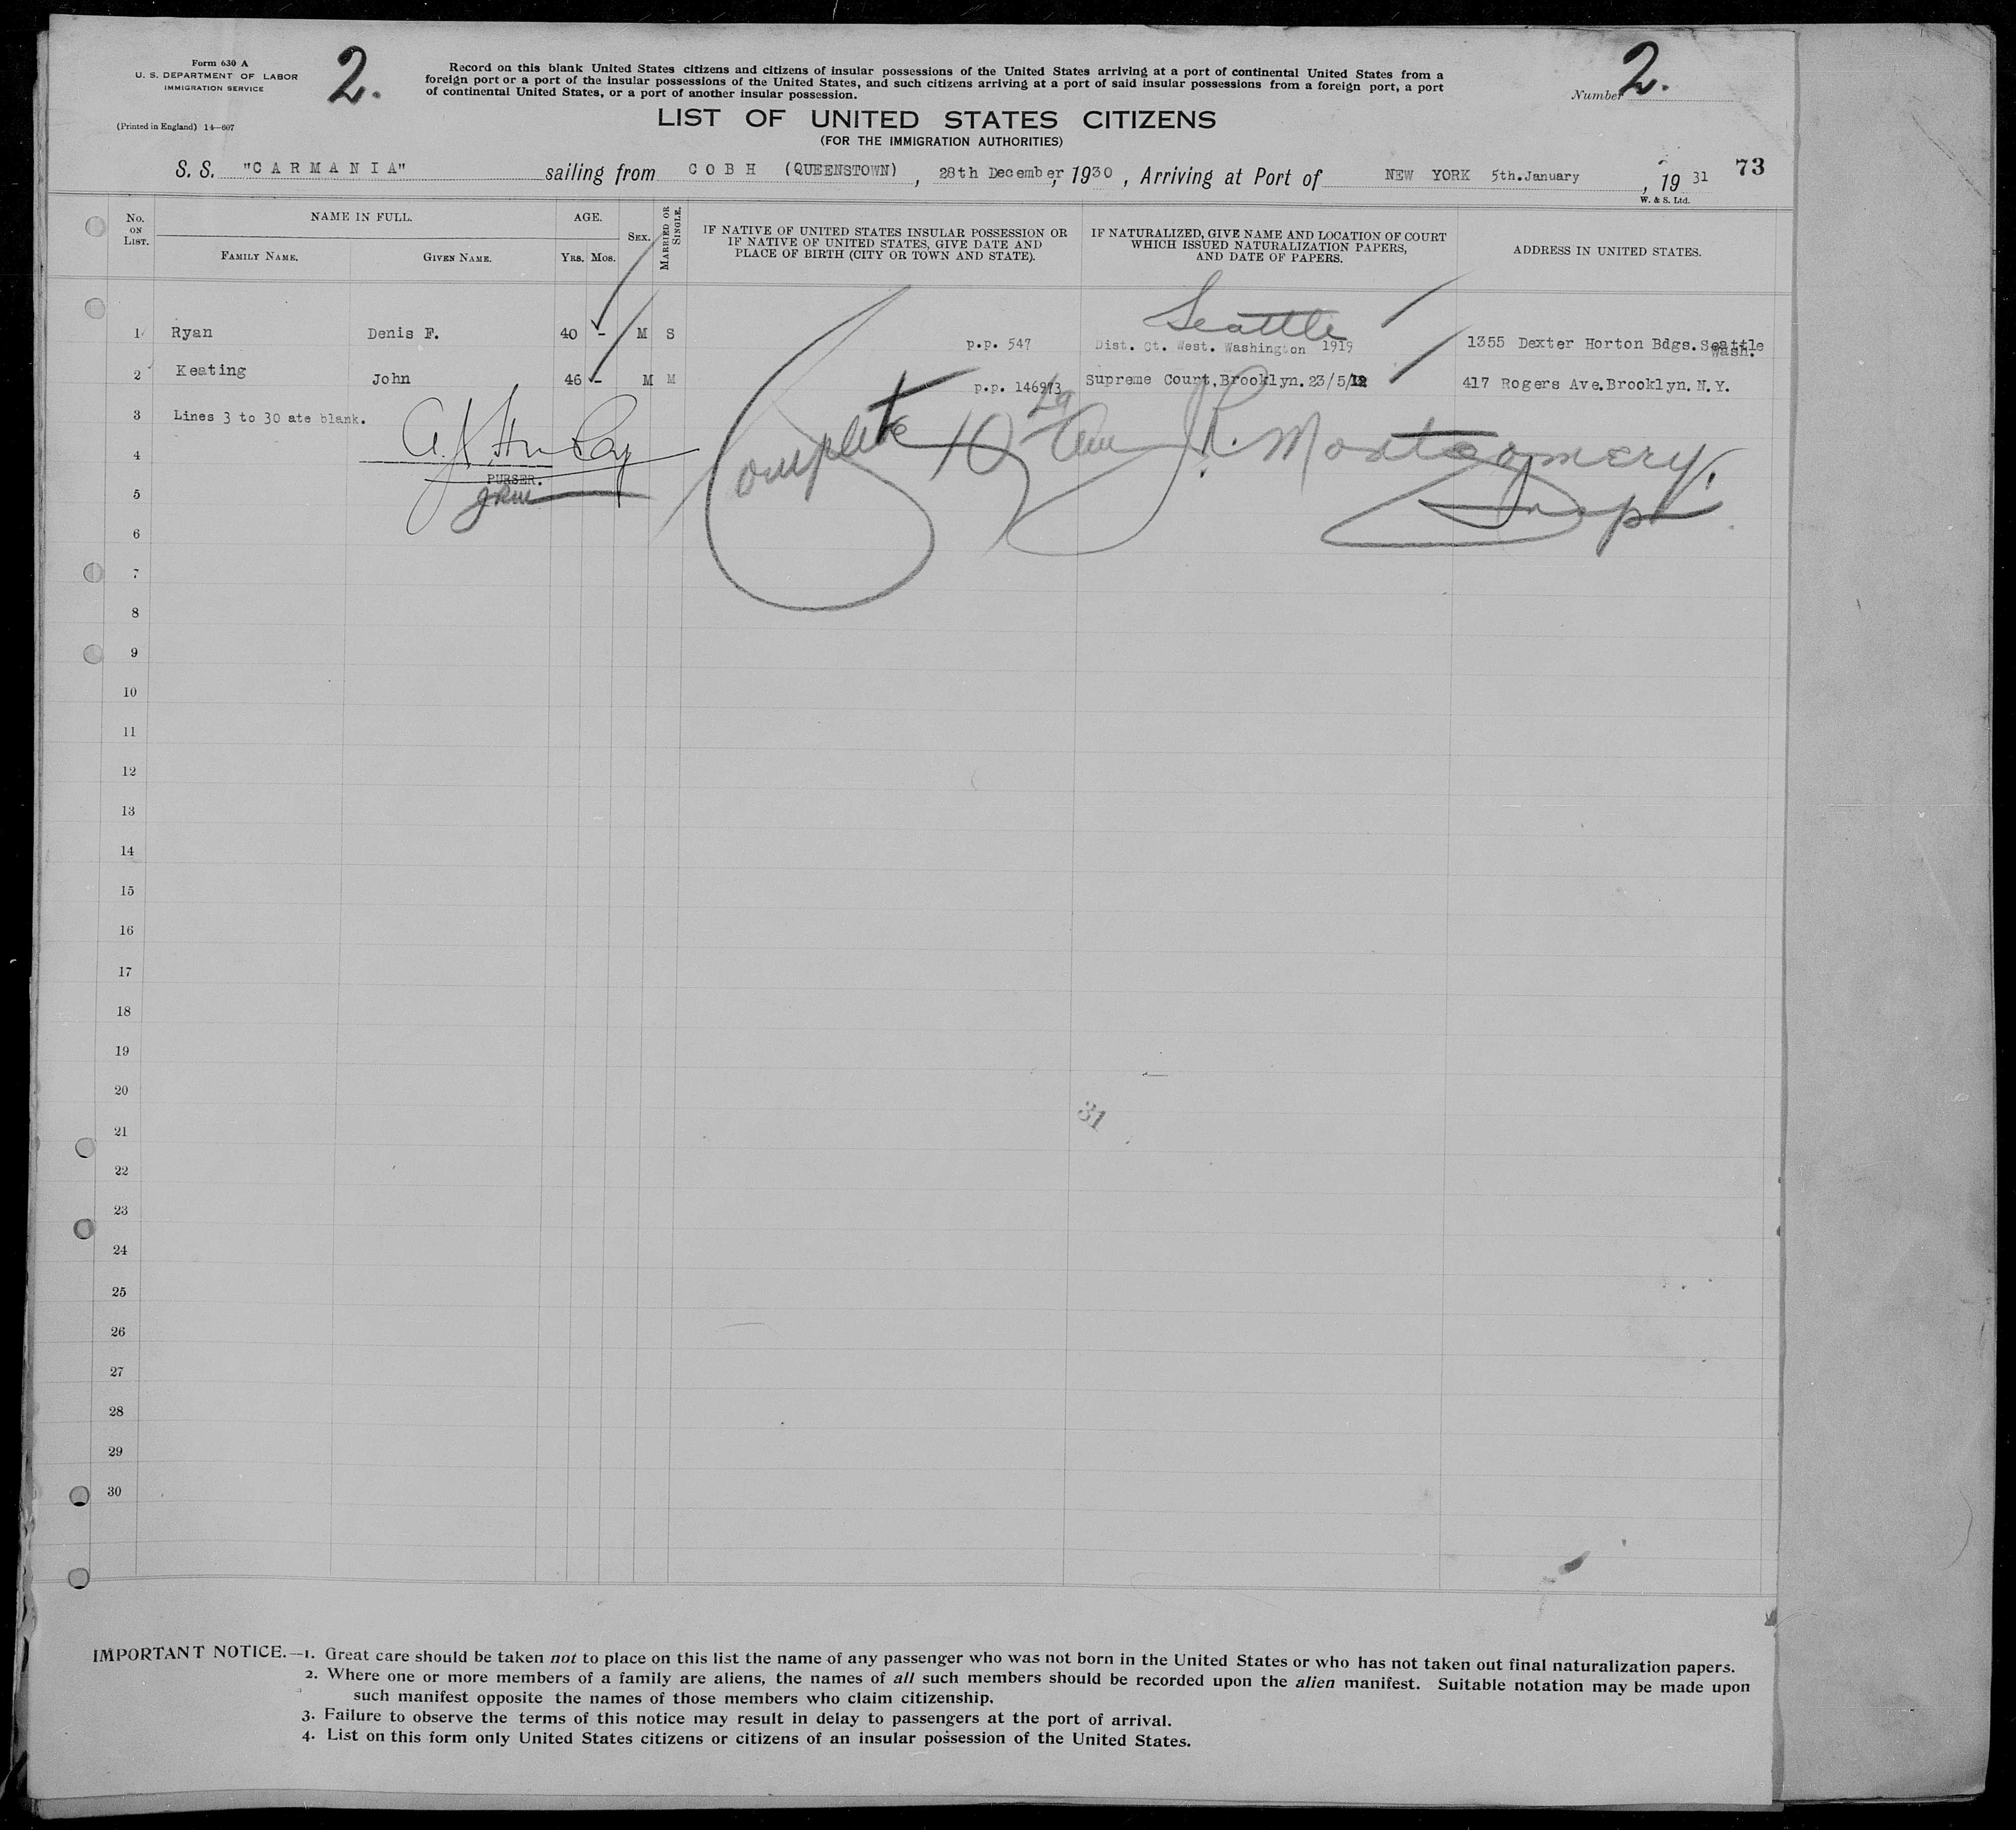 Form 630 A
U. S. DEPARTMENT OF LABOR
IMMIGRATION SERVICE
(Printed in England) 14—607
2.
Record on this blank United States citizens and citizens of insular possessions of the United States arriving at a port of continental United States from a
foreign port or a port of the insular possessions of the United States, and such citizens arriving at a port of said insular possessions from a foreign port, a port
of continental United States, or a port of another insular possession.
Number 2.
LIST OF UNITED STATES CITIZENS
(FOR THE IMMIGRATION AUTHORITIES)
S. S. "CARMANIA" sailing from COBH (QUEENSTOWN), 28th December, 1930, Arriving at Port of NEW YORK 5th.January, 1931
73
W. & S. Ltd.
No. ON LIST.
NAME IN FULL.
FAMILY NAME.
GIVEN NAME.
AGE.
YRS. MOS.
SEX.
MARRIED OR SINGLE.
IF NATIVE OF UNITED STATES INSULAR POSSESSION OR
IF NATIVE OF UNITED STATES, GIVE DATE AND
PLACE OF BIRTH (CITY OR TOWN AND STATE).
IF NATURALIZED, GIVE NAME AND LOCATION OF COURT
WHICH ISSUED NATURALIZATION PAPERS,
AND DATE OF PAPERS.
ADDRESS IN UNITED STATES.
Seattle
1 Ryan Denis F. 40 - M S p.p. 547 Dist. Ct. West. Washington 1919 1355 Dexter Horton Bdgs. Seattle Wash.
2 Keating John 46 - M M p.p. 146973 Supreme Court, Brooklyn. 23/5/12 417 Rogers Ave. Brooklyn. N.Y.
3 Lines 3 to 30 ate blank.
PURSER.
JRM
Complete 10 J.R. Montgomery.
Insp
4
5
6
7
8
9
10
11
12
13
14
15
16
17
18
19
20
31
21
22
23
24
25
26
27
28
29
30
IMPORTANT NOTICE.—1. Great care should be taken not to place on this list the name of any passenger who was not born in the United States or who has not taken out final naturalization papers.
2. Where one or more members of a family are aliens, the names of all such members should be recorded upon the alien manifest. Suitable notation may be made upon
such manifest opposite the names of those members who claim citizenship.
3. Failure to observe the terms of this notice may result in delay to passengers at the port of arrival.
4. List on this form only United States citizens or citizens of an insular possession of the United States.